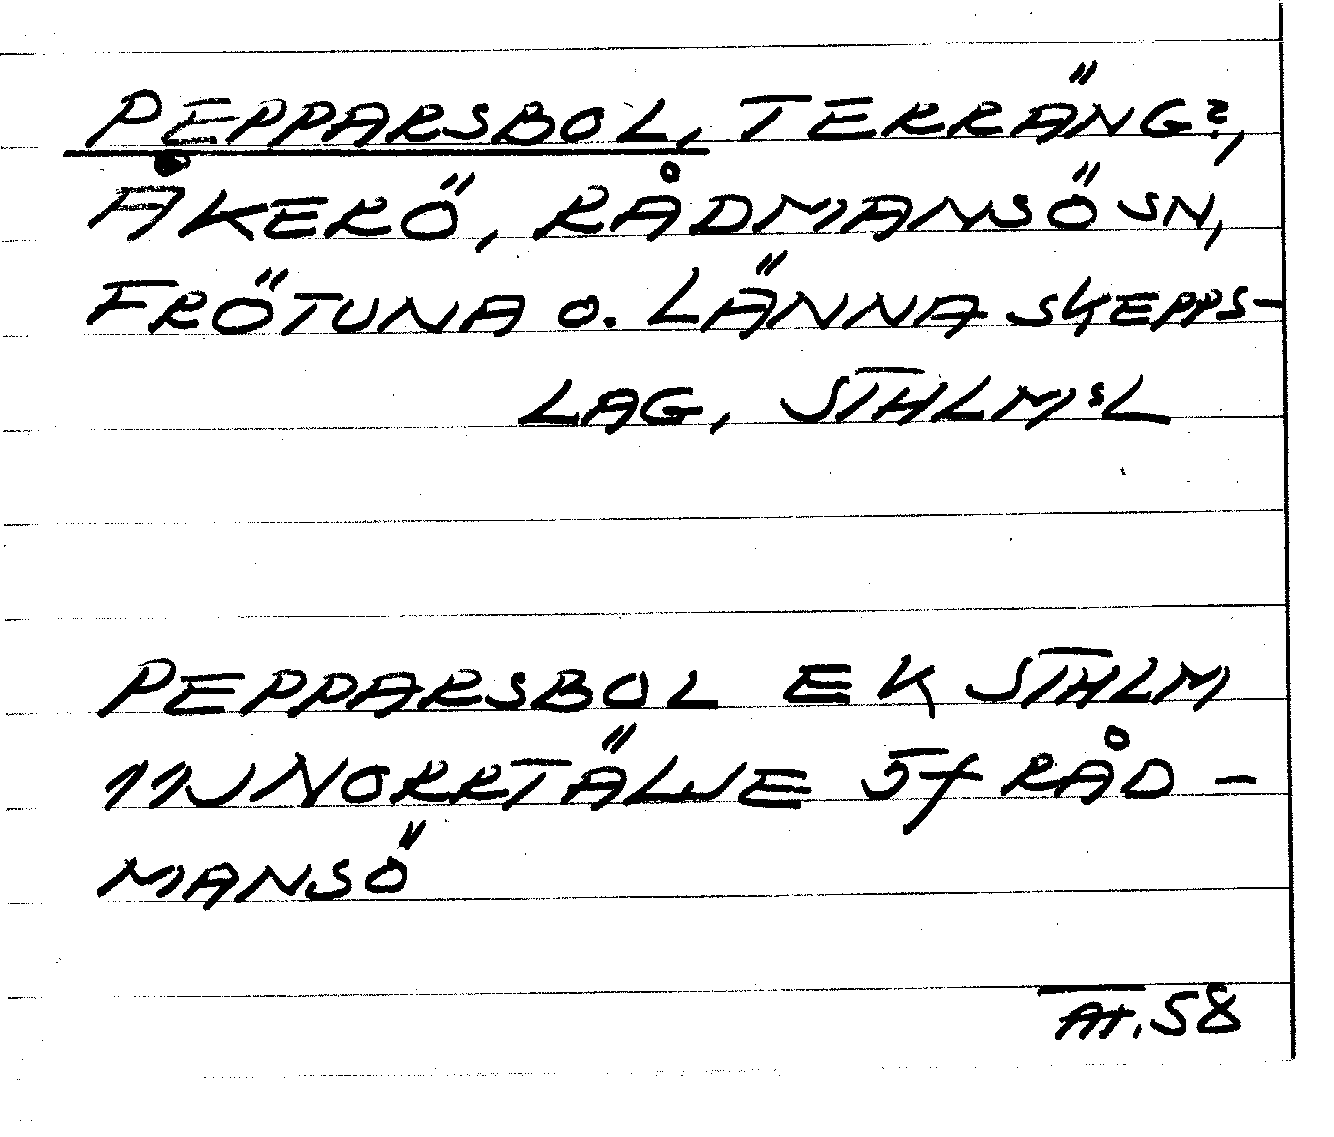 PEPPARSBOL, TERRÄNG?,
ÅKERÖ, RÅDMANSÖ SN,
FRÖTUNA O. LÄNNA SKEPPS-
LAG, STHLM:S L
PEPPARSBOL EK STHLM
11J NORRTÄLJE 5f RÅD-
MANSÖ
58